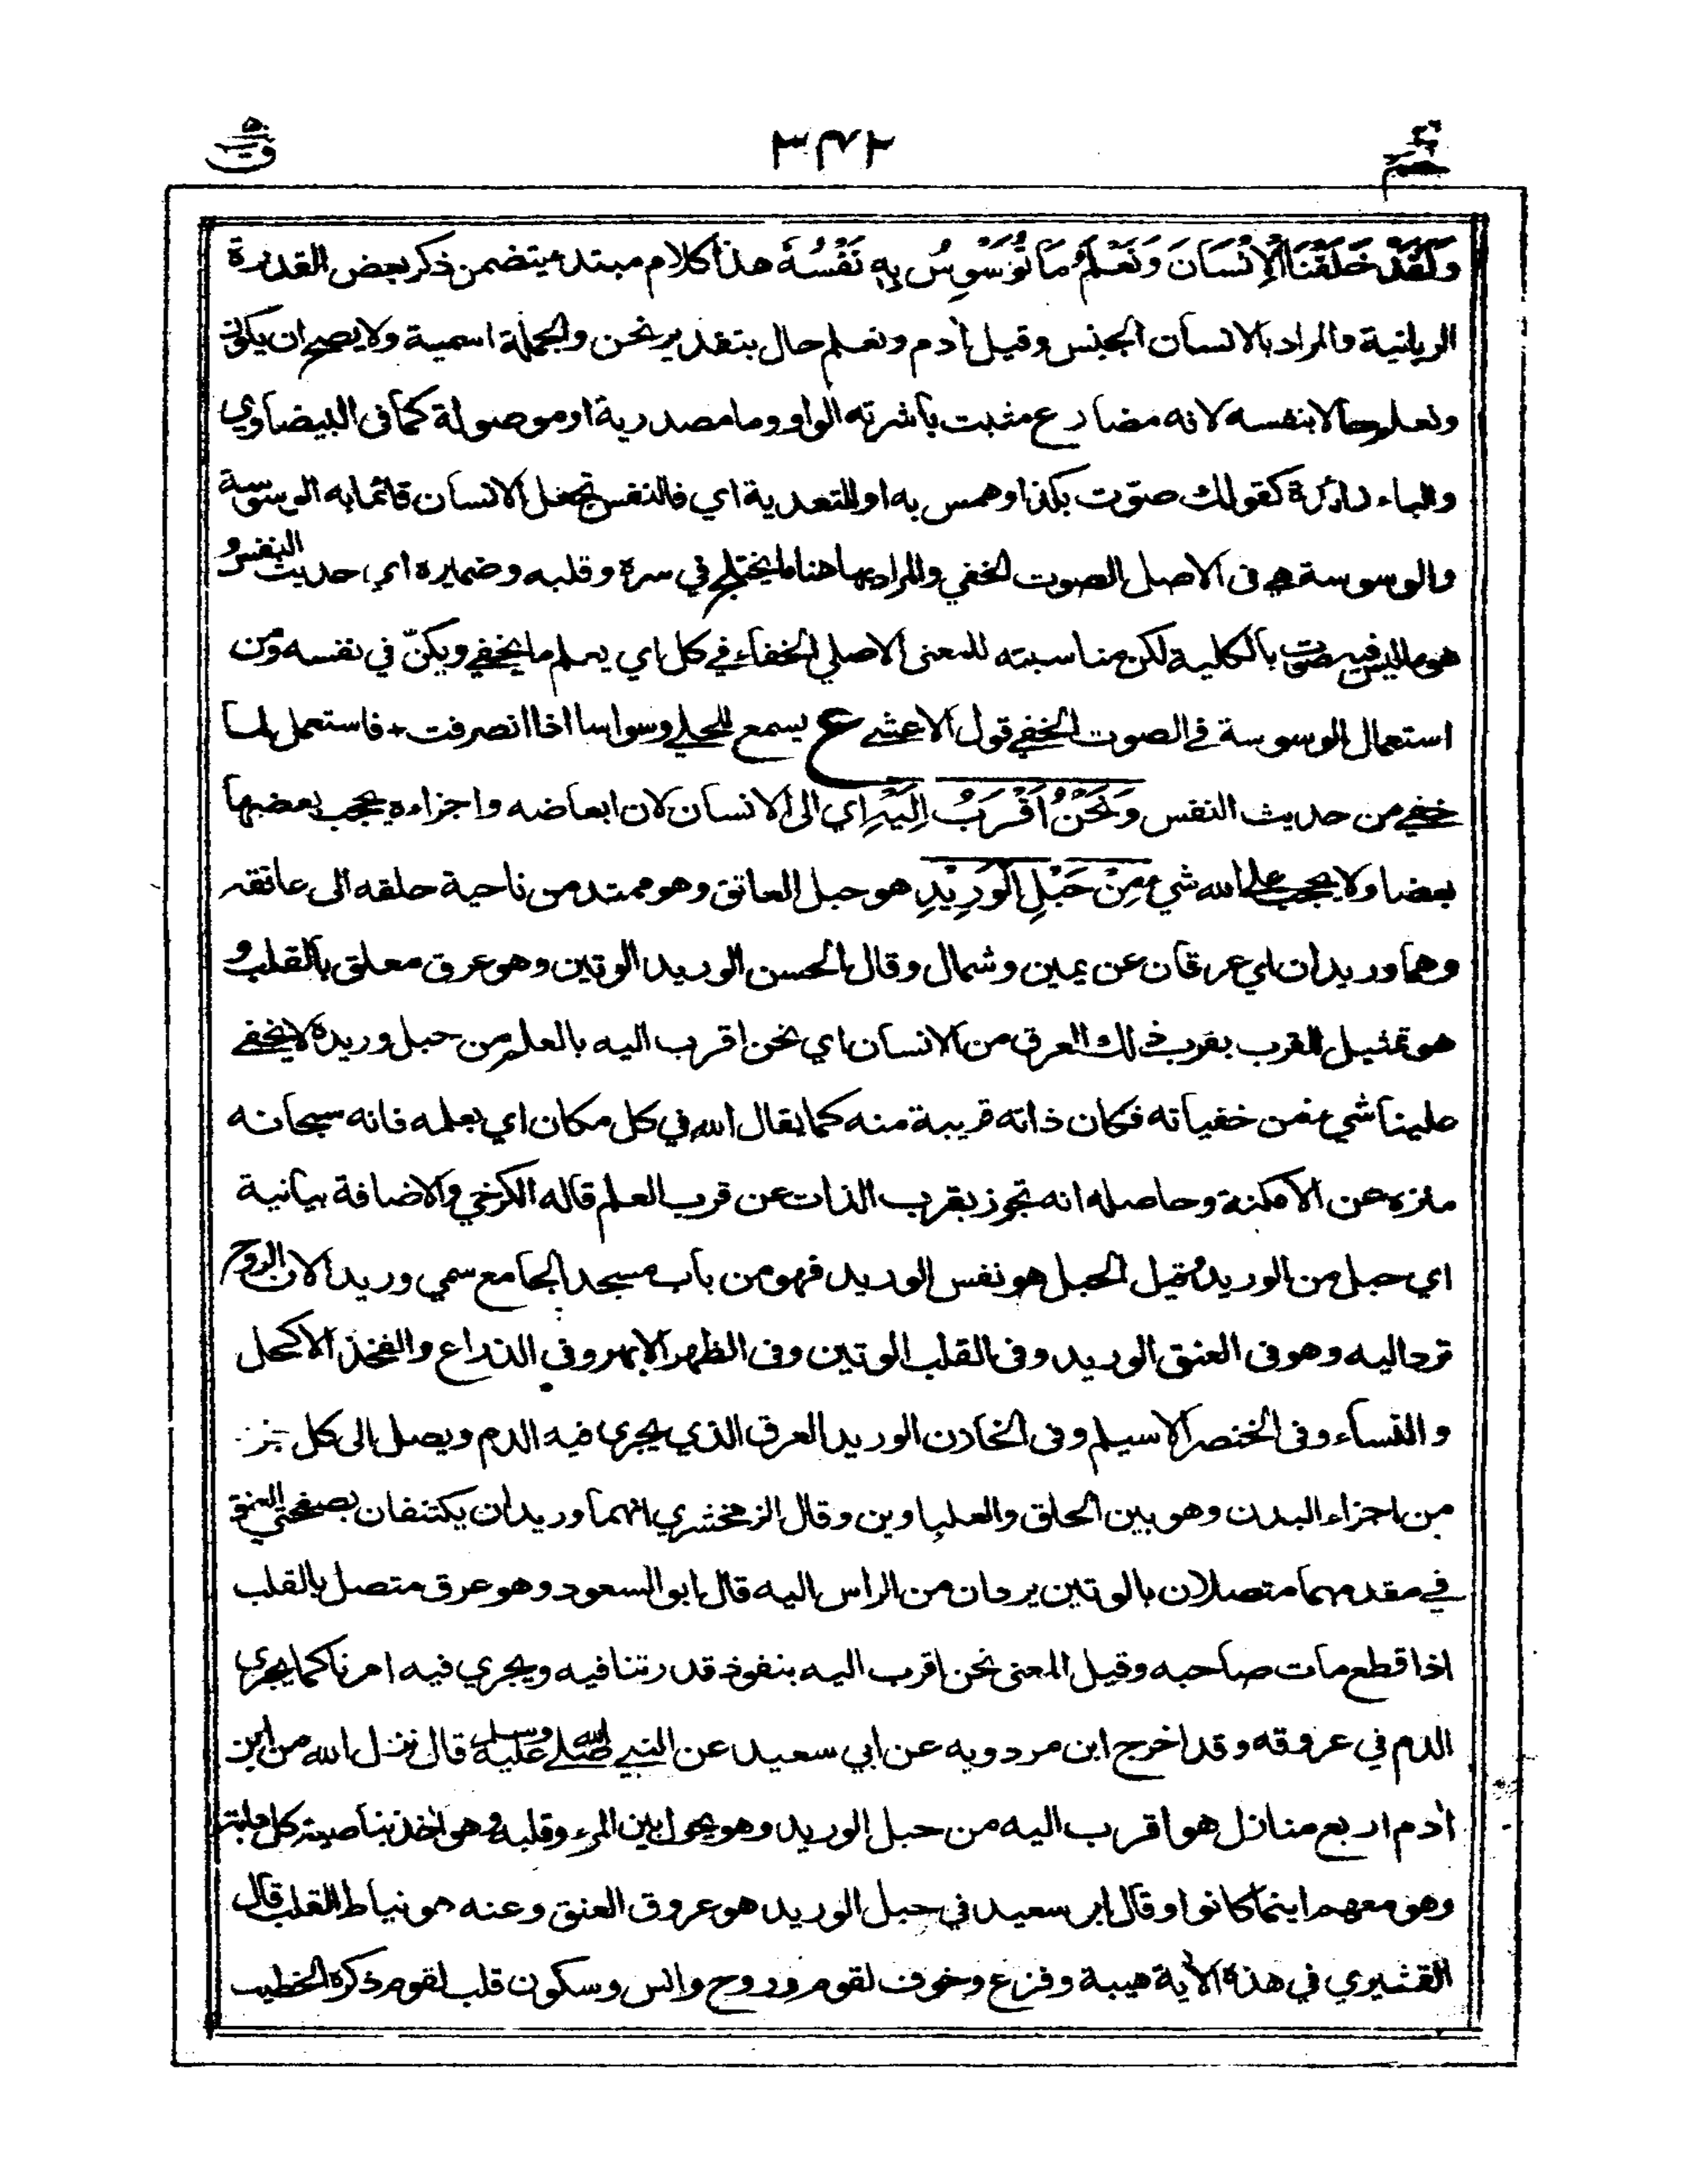 حٰم ٣٧٢ ق
وَلَقَدْ خَلَقْنَا الْإِنْسَانَ وَنَعْلَمُ مَا تُوَسْوِسُ بِهِ نَفْسُهُ هذا كلام مبتدء يتضمن ذكر بعض القدرة
الربانية والمراد بالانسان الجنس وقيل اٰدم ونعلم حال بتقدير نحن والجملة اسمية ولا يصح ان يكون
ونعلم حالا بنفسه لانه مضارع مثبت باشرته الواو وما مصدرية او موصولة كما فى البيضاوي
والباء زائدة كقولك صوّت بكذا وهمس به او للتعدية اي فالنفس تجعل الانسان قائما به الوسوسة
والوسوسة هي فى الاصل الصوت الخفي والمراد بها هنا ما يختلج في سره وقلبه وضميره اي حديث النفس و
هو ما ليس فيه صوت بالكلية لكن مناسبته للمعنى الاصلي الخفاء في كل اي يعلم ما يخفي ويكنّ في نفسه ومن
استعمال الوسوسة في الصوت الخفي قول الاعشى ع يسمع للحلي وسواسا اذا انصرفت + فاستعمل لما
خفي من حديث النفس وَنَحْنُ أَقْرَبُ إِلَيْهِ اي الى الانسان لان ابعاضه واجزاءه يحجب بعضها
بعضا ولا يحجب علم الله شيء مِنْ حَبْلِ الْوَرِيْدِ هو حبل العاتق وهو ممتد من ناحية حلقه الى عاتقه
وهما وريدان اي عرقان عن يمين وشمال وقال الحسن الوريد الوتين وهو عرق معلق بالقلب و
هو تمثيل للقرب بقرب ذلك العرق من الانسان اي نحن اقرب اليه بالعلم من حبل وريده لا يخفى
علينا شيء من خفياته فكان ذاته قريبة منه كما يقال الله في كل مكان اي بعلمه فانه سبحانه
منزه عن الامكنة وحاصله انه تجوز بقرب الذات عن قرب العلم قاله الكرخي والاضافة بيانية
اي حبل من الوريد وقيل الحبل هو نفس الوريد فهو من باب مسجد الجامع سمي وريدا لان الروح
ترد اليه وهو فى العنق الوريد وفى القلب الوتين وفى الظهر الابهر وفي الذراع والفخذ الاكحل
والنساء وفى الخنصر الاسيلم وفى الخازن الوريد العرق الذي يجرى فيه الدم ويصل الى كل جزء
من اجزاء البدن وهو بين الحلق والعلباوين وقال الزمخشري انهما وريدان يكتنفان بصفحتي العنق
في مقدمهما متصلان بالوتين يردان من الراس اليه قال ابو السعود وهو عرق متصل بالقلب
اذا قطع مات صاحبه وقيل المعنى نحن اقرب اليه بنفوذ قدرتنا فيه ويجري فيه امرنا كما يجري
الدم في عروقه وقد اخرج ابن مردويه عن ابي سعيد عن النبي صلى الله عليه وسلم قال نزل الله من ابن
اٰدم اربع منازل هو اقرب اليه من حبل الوريد وهو يحول بين المرء وقلبه وهو اٰخذ بناصية كل دابة
وهو معهم اينما كانوا وقال ابو سعيد في حبل الوريد هو عروق العنق وعنه هو نياط القلب قال
القشيري في هذه الاٰية هيبة وفزع وخوف لقوم وروح وانس وسكون قلب لقوم ذكره الخطيب